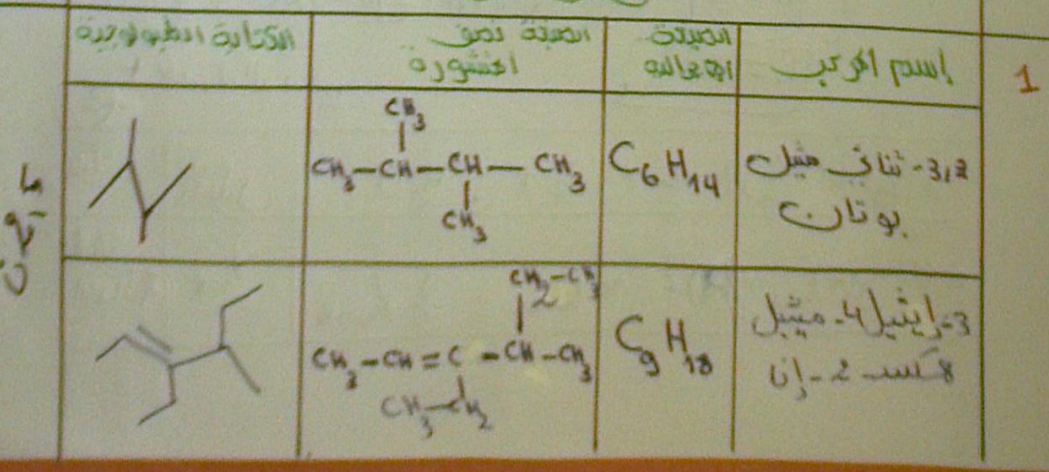 إسم المركب
الصيغة
الإجمالية
الصيغة نصف
المنشورة
الكتابة الطبولوجية
1
2,3- ثنائي مثيل
بوتان
C6H14
CH3
CH3-CH-CH-CH3
CH3
3-إيثيل 4- ميثيل
2-إن
C9H18
CH2-CH3
CH3-CH=C-CH-CH3
CH3-CH2